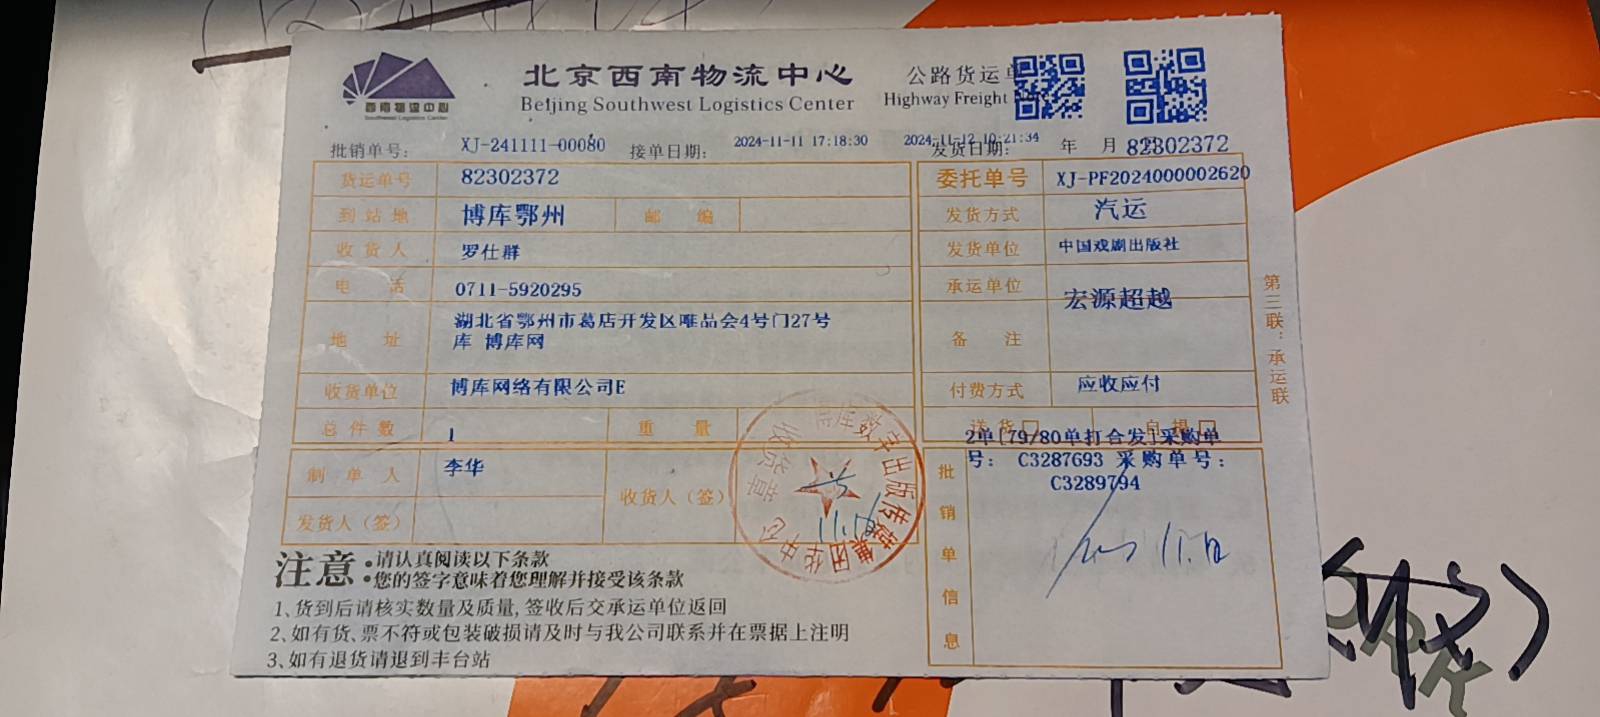 北京西南物流中心
公路货运单
西南物流中心
Southwest Logistics Center
Beijing Southwest Logistics Center
Highway Freight Note
批销单号: XJ-241111-00080 接单日期: 2024-11-11 17:18:30 发货日期: 2024-11-12 10:21:34 年 月 82302372
货运单号 82302372
委托单号 XJ-PF2024000002620
到站地 博库鄂州 邮 编
发货方式 汽运
收货人 罗仕群
发货单位 中国戏剧出版社
电 话 0711-5920295
承运单位 宏源超越
地 址 湖北省鄂州市葛店开发区唯品会4号门27号
库 博库网
备 注
收货单位 博库网络有限公司E
付费方式 应收应付
总件数 1 重 量
送货 自提
制单人 李华
收货人（签）
发货人（签）
批销单信息
2单[79/80单打合发]采购单
号: C3287693 采购单号:
C3289794
第三联：承运联
博库数字出版传媒集团华中仓
收货章
注意:
请认真阅读以下条款
您的签字意味着您理解并接受该条款
1、货到后请核实数量及质量,签收后交承运单位返回
2、如有货、票不符或包装破损请及时与我公司联系并在票据上注明
3、如有退货请退到丰台站